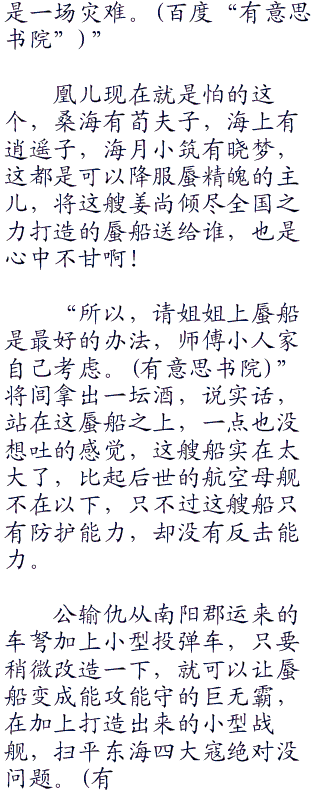 是一场灾难。(百度“有意思
书院”)”
凰儿现在就是怕的这
个，桑海有荀夫子，海上有
逍遥子，海月小筑有晓梦，
这都是可以降服蜃精魄的主
儿，将这艘姜尚倾尽全国之
力打造的蜃船送给谁，也是
心中不甘啊！
“所以，请姐姐上蜃船
是最好的办法，师傅小人家
自己考虑。(有意思书院)”
将闾拿出一坛酒，说实话，
站在这蜃船之上，一点也没
想吐的感觉，这艘船实在太
大了，比起后世的航空母舰
不在以下，只不过这艘船只
有防护能力，却没有反击能
力。
公输仇从南阳郡运来的
车弩加上小型投弹车，只要
稍微改造一下，就可以让蜃
船变成能攻能守的巨无霸，
在加上打造出来的小型战
舰，扫平东海四大寇绝对没
问题。(有